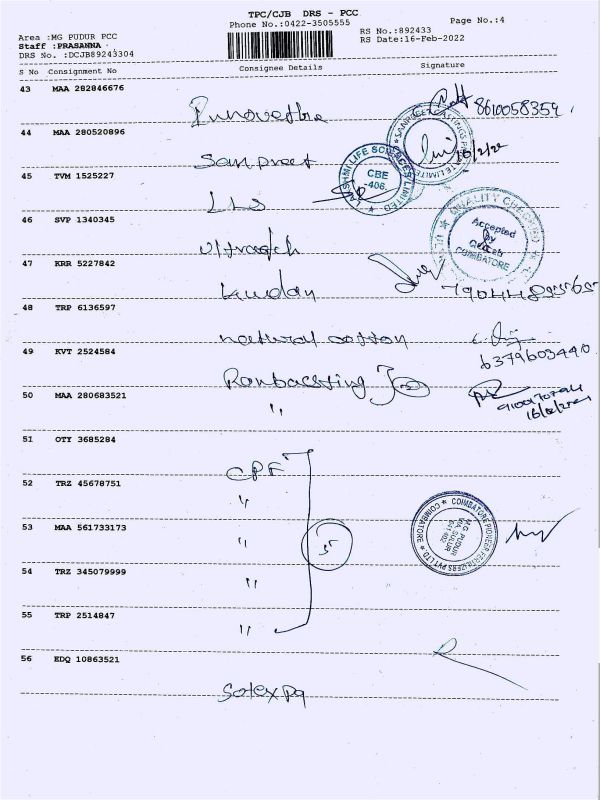 TPC/CJB DRS - PCC
Phone No.:0422-3505555
Page No.:4
Area :MG PUDUR PCC
RS No.:892433
Staff :PRASANNA
RS Date:16-Feb-2022
DRS No. :DCJB89243304
S No Consignment No Consignee Details Signature
43 MAA 282846676
8610058359
44 MAA 280520896
Sanpreet
45 TVM 1525227
CBE
-408.
LLS
46 SVP 1340345
QUALITY CHECKED
Accepted
by
COIMBATORE
Ultratech
47 KRR 5227842
48 TRP 6136597
natural cotton
49 KVT 2524584
6379603440
50 MAA 280683521
"
51 OTY 3685284
CPF
52 TRZ 45678751
"
53 MAA 561733173
COIMBATORE PIONEER FERTILIZERS PVT LTD
COIMBATORE
M.G PUDUR
"
54 TRZ 345079999
"
55 TRP 2514847
"
56 EDQ 10863521
Sotexpa